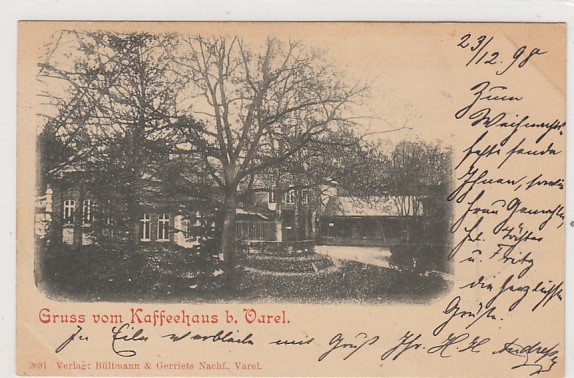 23/12. 98
Zum
Weihnachts-
feste sende
Ihnen, sowie
Frau Gemahlin
frl. Töchter
u. Fritz
die herzlichsten
Grüße.
Gruss vom Kaffeehaus b. Varel.
In Eile verbleibe mit Gruß Ihr. H. H.
2691 Verlag: Bültmann & Gerriets Nachf., Varel.